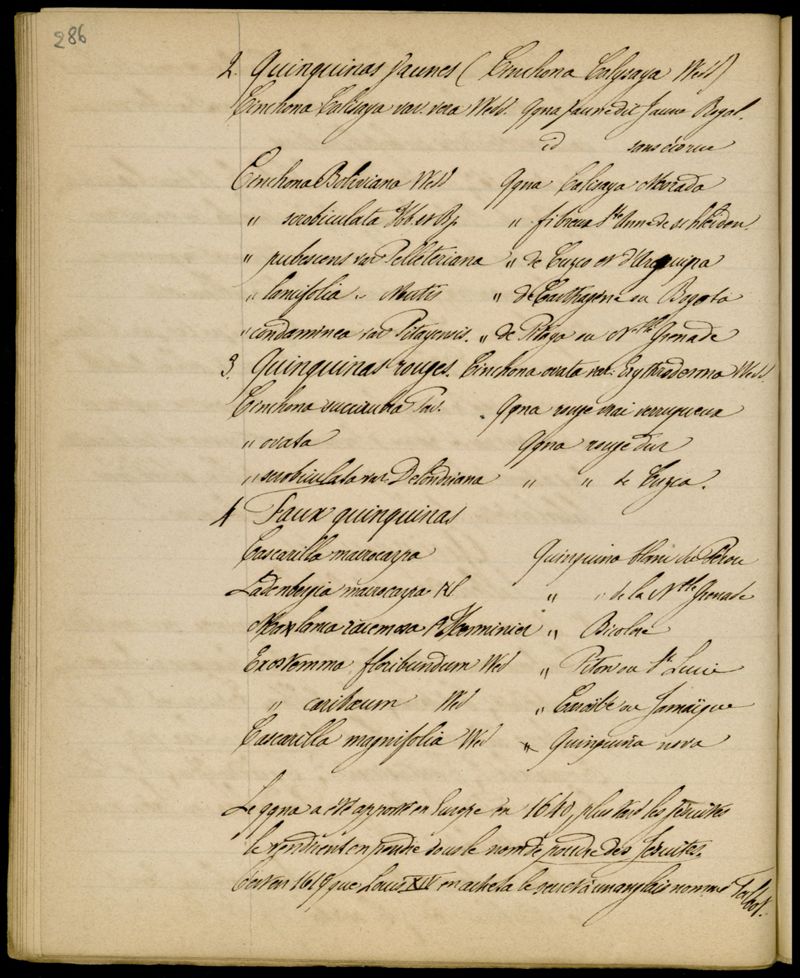 286
2. Quinquinas jaunes (Cinchona Calysaya Wedl)
Cinchona Calisaya var. vera Wedl. Qqna jaune dit jaune Royal.
id sans écorce
Cinchona Boliviana Wedl Qqna Calisaya Morada
" scrobiculata Hb. et Bp. " fibreux
" pubescens var Pelleteriana " de Cuzco et d'Arequipa
" lancifolia Mutis " de Carthagène ou Bogota
" condaminea var Pitayensis. " de Pitayo ou Nlle Grenade
3. Quinquinas rouges. Cinchona ovata var. Erythroderma Wedl.
Cinchona succirubra Pav. Qqna rouge vrai verruqueux
" ovata Qqna rouge dur
" scrobiculata var Delondriana " " de Cuzco.
4 Faux quinquinas
Cascarilla macrocarpa Quinquina blanc du Pérou
Ladenbergia macrocarpa Kl " " de la Nlle Grenade
racemosa L'Herminier " Bicolore
Exostemma floribundum Wed " Piton ou Ste Lucie
" caribœum Wed " Caraïbe ou Jamaïque
Cascarilla magnifolia Wed " Quinquina nova
Le qqna a été apporté en Europe en 1640, plus tard les Jésuites
le vendirent en poudre sous le nom de poudre des Jésuites.
C'est en 1679 que Louis XIV en acheta le secret à un anglais nommé Talbot.